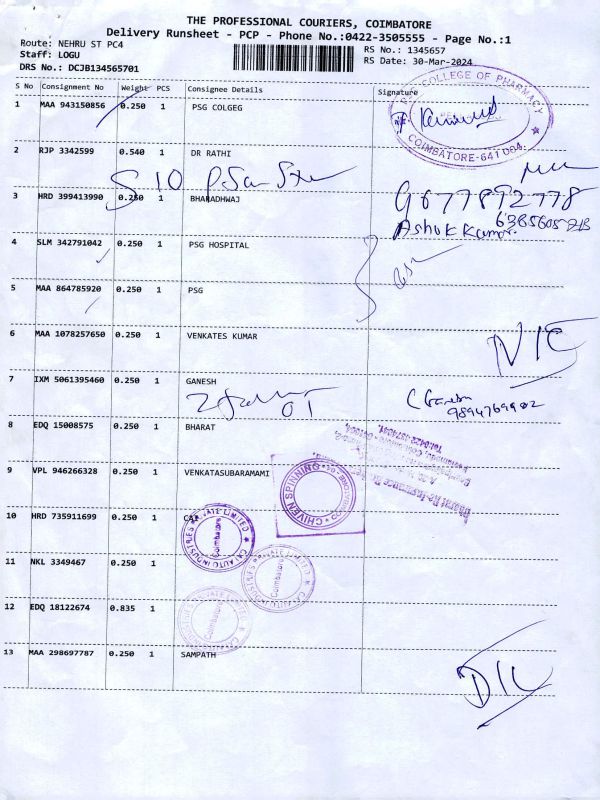 THE PROFESSIONAL COURIERS, COIMBATORE
Delivery Runsheet - PCP - Phone No.:0422-3505555 - Page No.:1
Route: NEHRU ST PC4 RS No.: 1345657
Staff: LOGU RS Date: 30-Mar-2024
DRS No.: DCJB134565701
S No Consignment No Weight PCS Consignee Details Signature
1 MAA 943150856 0.250 1 PSG COLGEG
COLLEGE OF PHARMACY
COIMBATORE-641 004.
2 RJP 3342599 0.540 1 DR RATHI
S 10
3 HRD 399413990 0.250 1 BHARADHWAJ
9677892778
Ashok Kumar
4 SLM 342791042 0.250 1 PSG HOSPITAL
5 MAA 864785920 0.250 1 PSG
6 MAA 1078257650 0.250 1 VENKATES KUMAR
7 IXM 5061395460 0.250 1 GANESH
01
C Ganesh
9894769982
8 EDQ 15008575 0.250 1 BHARAT
9 VPL 946266328 0.250 1 VENKATASUBARAMAMI
CHIVEN SPINNING
10 HRD 735911699 0.250 1
CAI AUTO INDUSTRIES PRIVATE LIMITED
Coimbatore
11 NKL 3349467 0.250 1
Coimbatore
12 EDQ 18122674 0.835 1
Coimbatore
13 MAA 298697787 0.250 1 SAMPATH